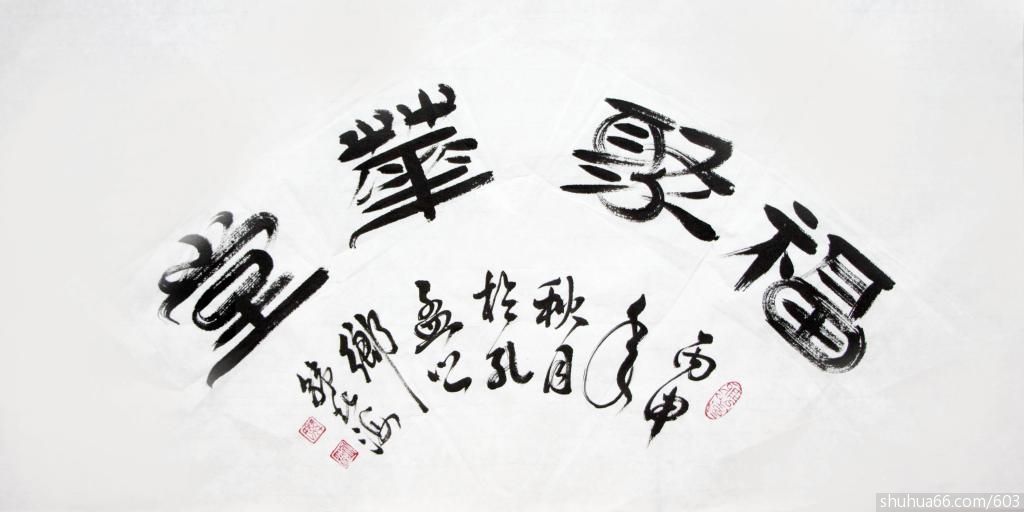 福聚華堂
丙申
年
秋月
於孔
孟之
鄉
shuhua66.com/603